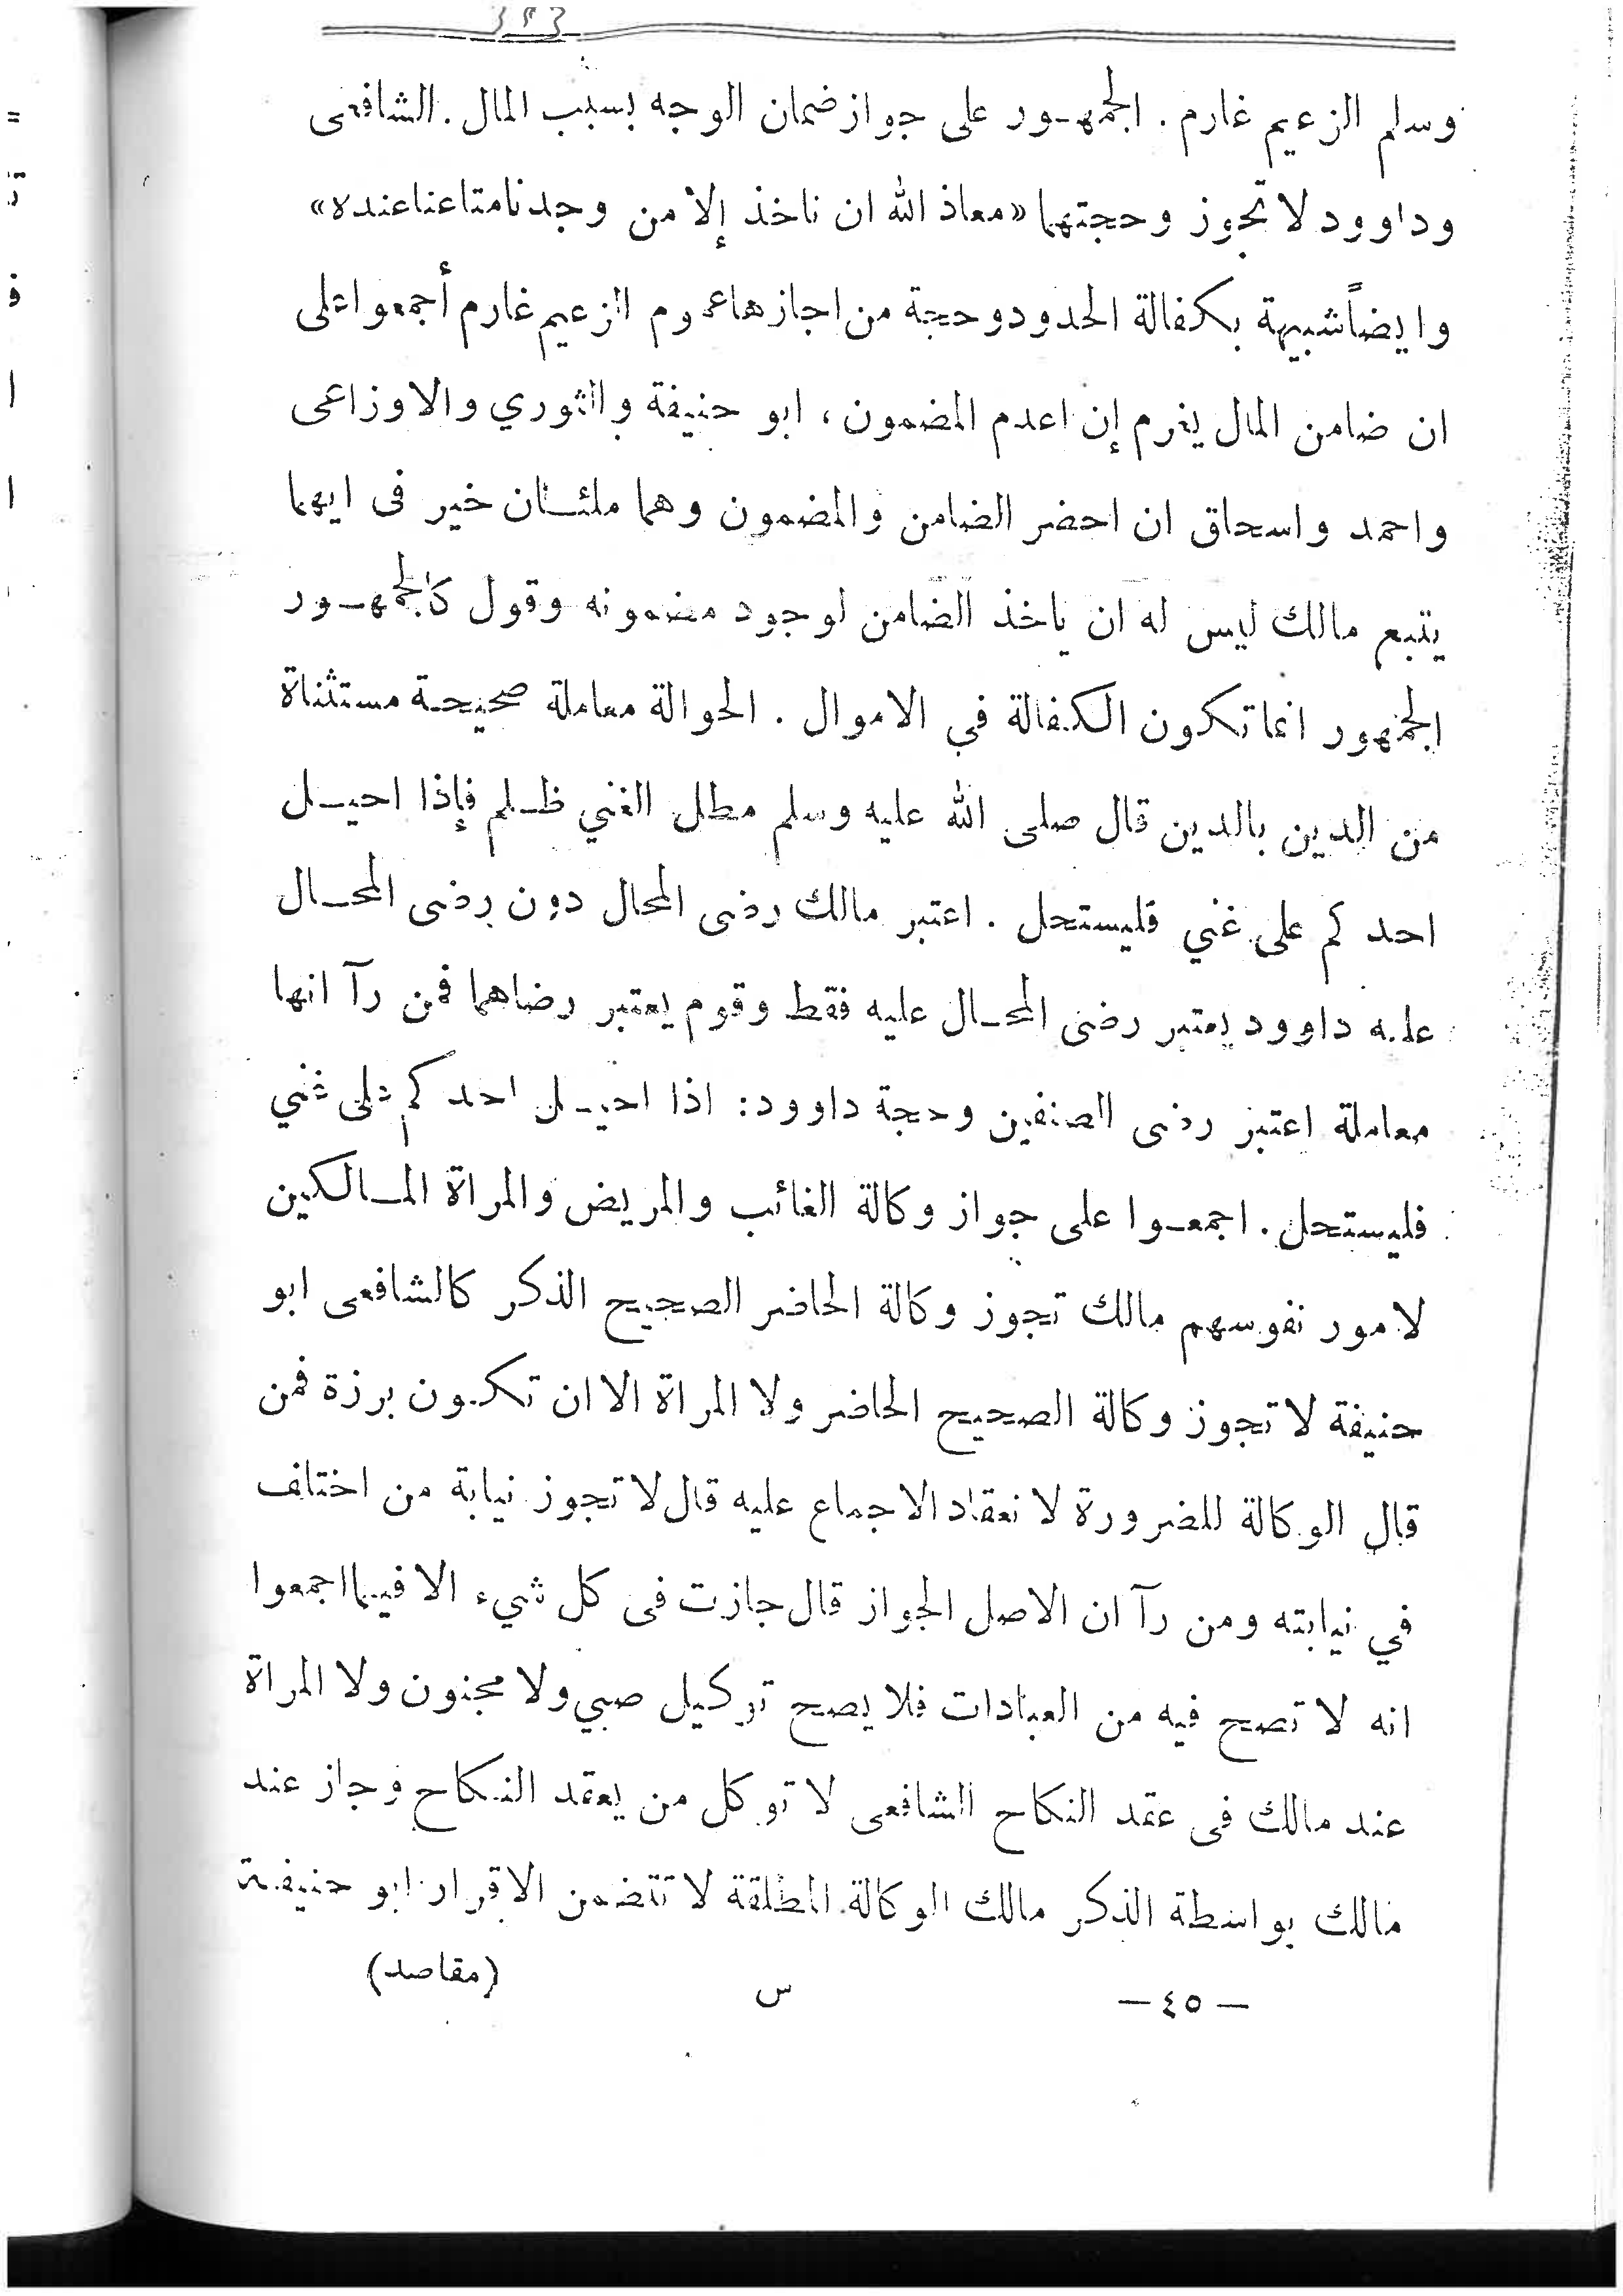 وسلم الزعيم غارم . الجمهور على جواز ضمان الوجه بسبب المال . الشافعى
وداوود لا تجوز وحجتهما «معاذ الله ان ناخذ إلا من وجدنا متاعنا عنده»
وايضاً شبيهة بكفالة الحدود وحجة من اجازها عموم الزعيم غارم أجمعوا على
ان ضامن المال يغرم إن اعدم المضمون ، ابو حنيفة والثوري والاوزاعى
واحمد واسحاق ان احضر الضامن والمضمون وهما ملئان خير فى ايهما
يتبع مالك ليس له ان ياخذ الضامن لوجود مضمونه وقول كالجمهور
الجمهور انما تكون الكفالة في الاموال . الحوالة معاملة صحيحة مستثناة
من الدين بالدين قال صلى الله عليه وسلم مطل الغني ظلم فإذا احيل
احدكم على غني فليستحل . اعتبر مالك رضى المحال دون رضى المحال
عليه داوود يعتبر رضى المحال عليه فقط وقوم يعتبر رضاهما فمن رآ انها
معاملة اعتبر رضى الصنفين وحجة داوود: اذا احيل احدكم على غني
فليستحل . اجمعوا على جواز وكالة الغائب والمريض والمراة المالكين
لامور نفوسهم مالك تجوز وكالة الحاضر الصحيح الذكر كالشافعى ابو
حنيفة لا تجوز وكالة الصحيح الحاضر ولا المراة الا ان تكون برزة فمن
قال الوكالة للضرورة لانعقاد الاجماع عليه قال لا تجوز نيابة من اختلف
في نيابته ومن رآ ان الاصل الجواز قال جازت فى كل شيء الا فيما اجمعوا
انه لا تصح فيه من العبادات فلا يصح توكيل صبي ولا مجنون ولا المراة
عند مالك فى عقد النكاح الشافعى لا توكل من يعقد النكاح وجاز عند
مالك بواسطة الذكر مالك الوكالة المطلقة لا تتضمن الاقرار ابو حنيفة
— ٤٥ — س (مقاصد)